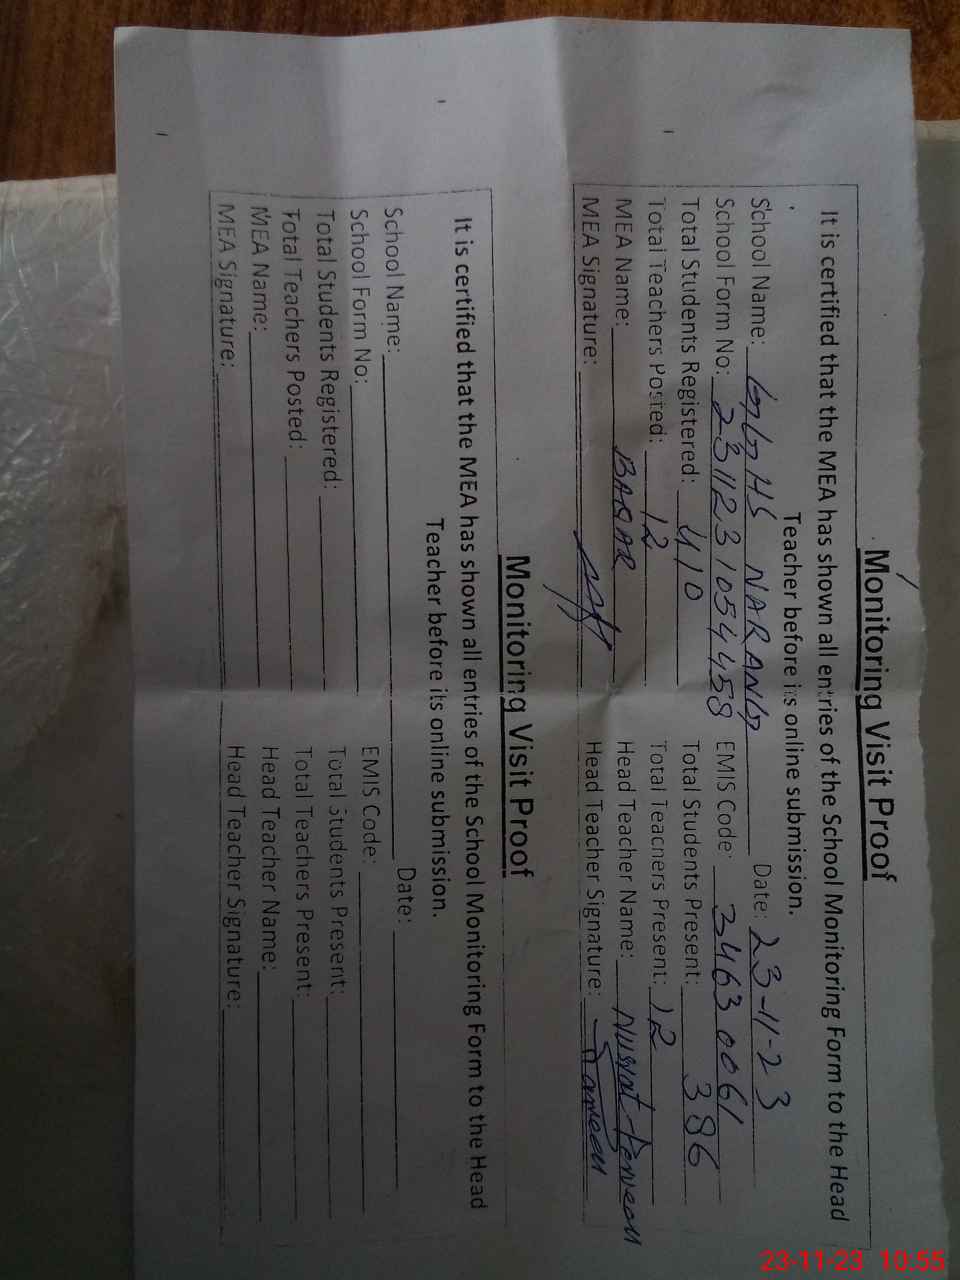 Monitoring Visit Proof
It is certified that the MEA has shown all entries of the School Monitoring Form to the Head
Teacher before its online submission.
School Name: GGHS NARANG Date: 23-11-23
School Form No: 2311231054458 EMIS Code: 34630061
Total Students Registered: 410 Total Students Present: 386
Total Teachers Posted: 12 Total Teachers Present: 12
MEA Name: BAQAR Head Teacher Name: Nusrat Perveen
MEA Signature: Head Teacher Signature:
Monitoring Visit Proof
It is certified that the MEA has shown all entries of the School Monitoring Form to the Head
Teacher before its online submission.
School Name: Date:
School Form No: EMIS Code:
Total Students Registered: Total Students Present:
Total Teachers Posted: Total Teachers Present:
MEA Name: Head Teacher Name:
MEA Signature: Head Teacher Signature:
23-11-23 10:55